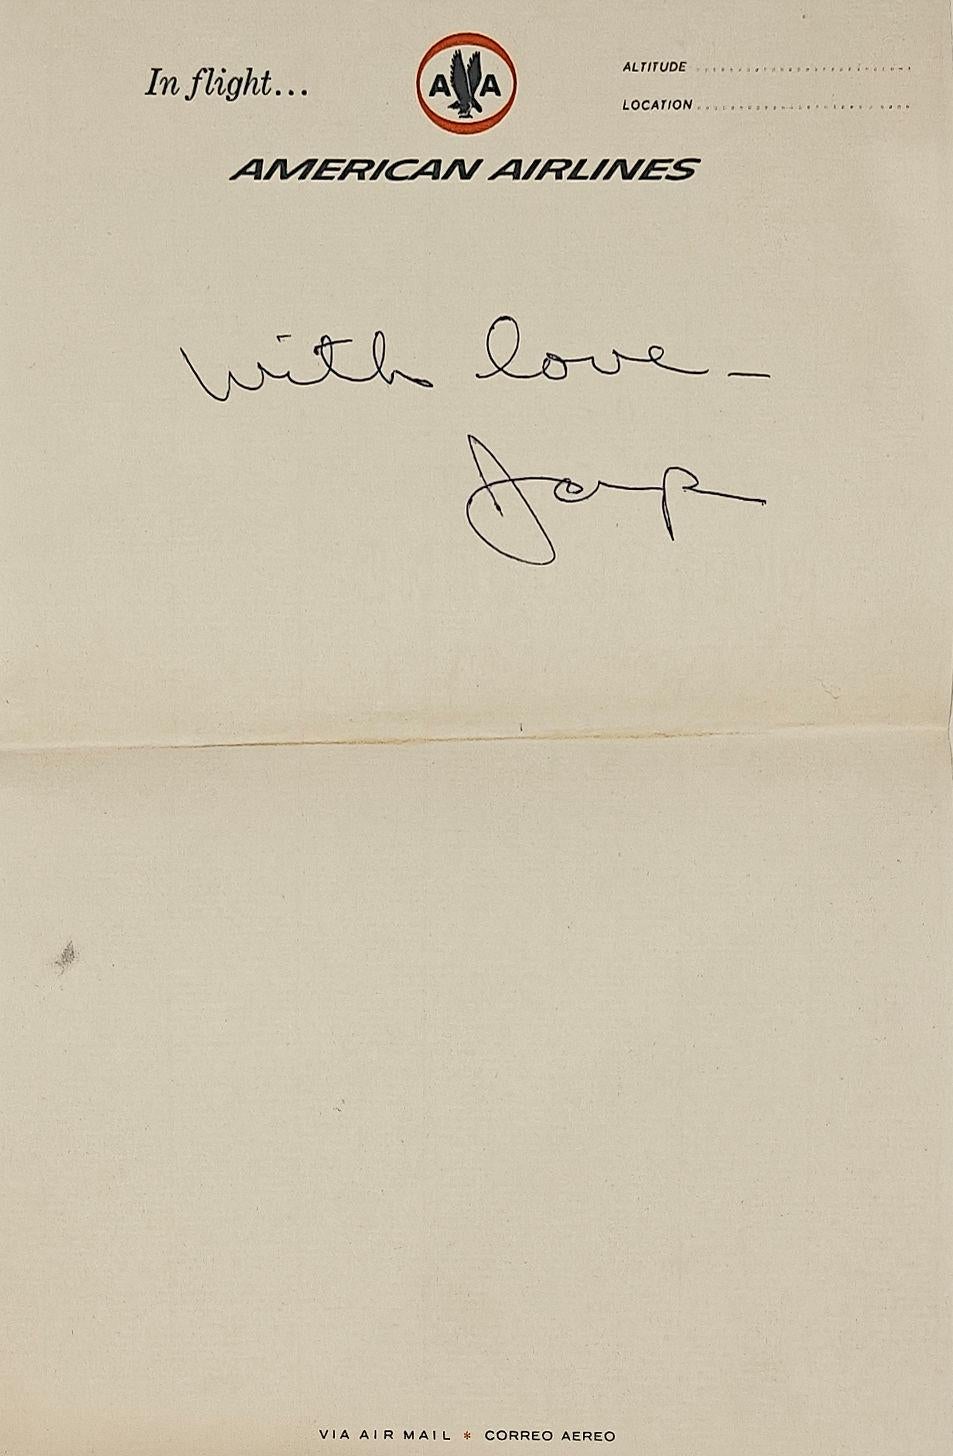 In flight...
A A
ALTITUDE
LOCATION
AMERICAN AIRLINES
With love-
VIA AIR MAIL * CORREO AEREO